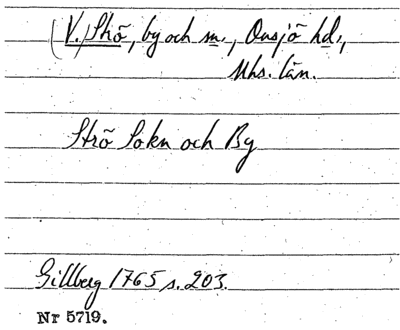 (V.) Strö, by och sn., Onsjö hd.,
Mhs. län.
Strö Sokn och By
Gillberg 1765 s. 203.
Nr 5719.